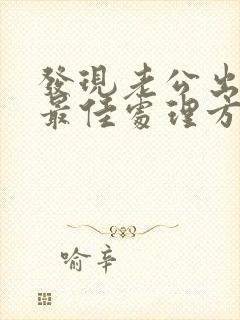 發現老公出
最佳處理方
喻辛